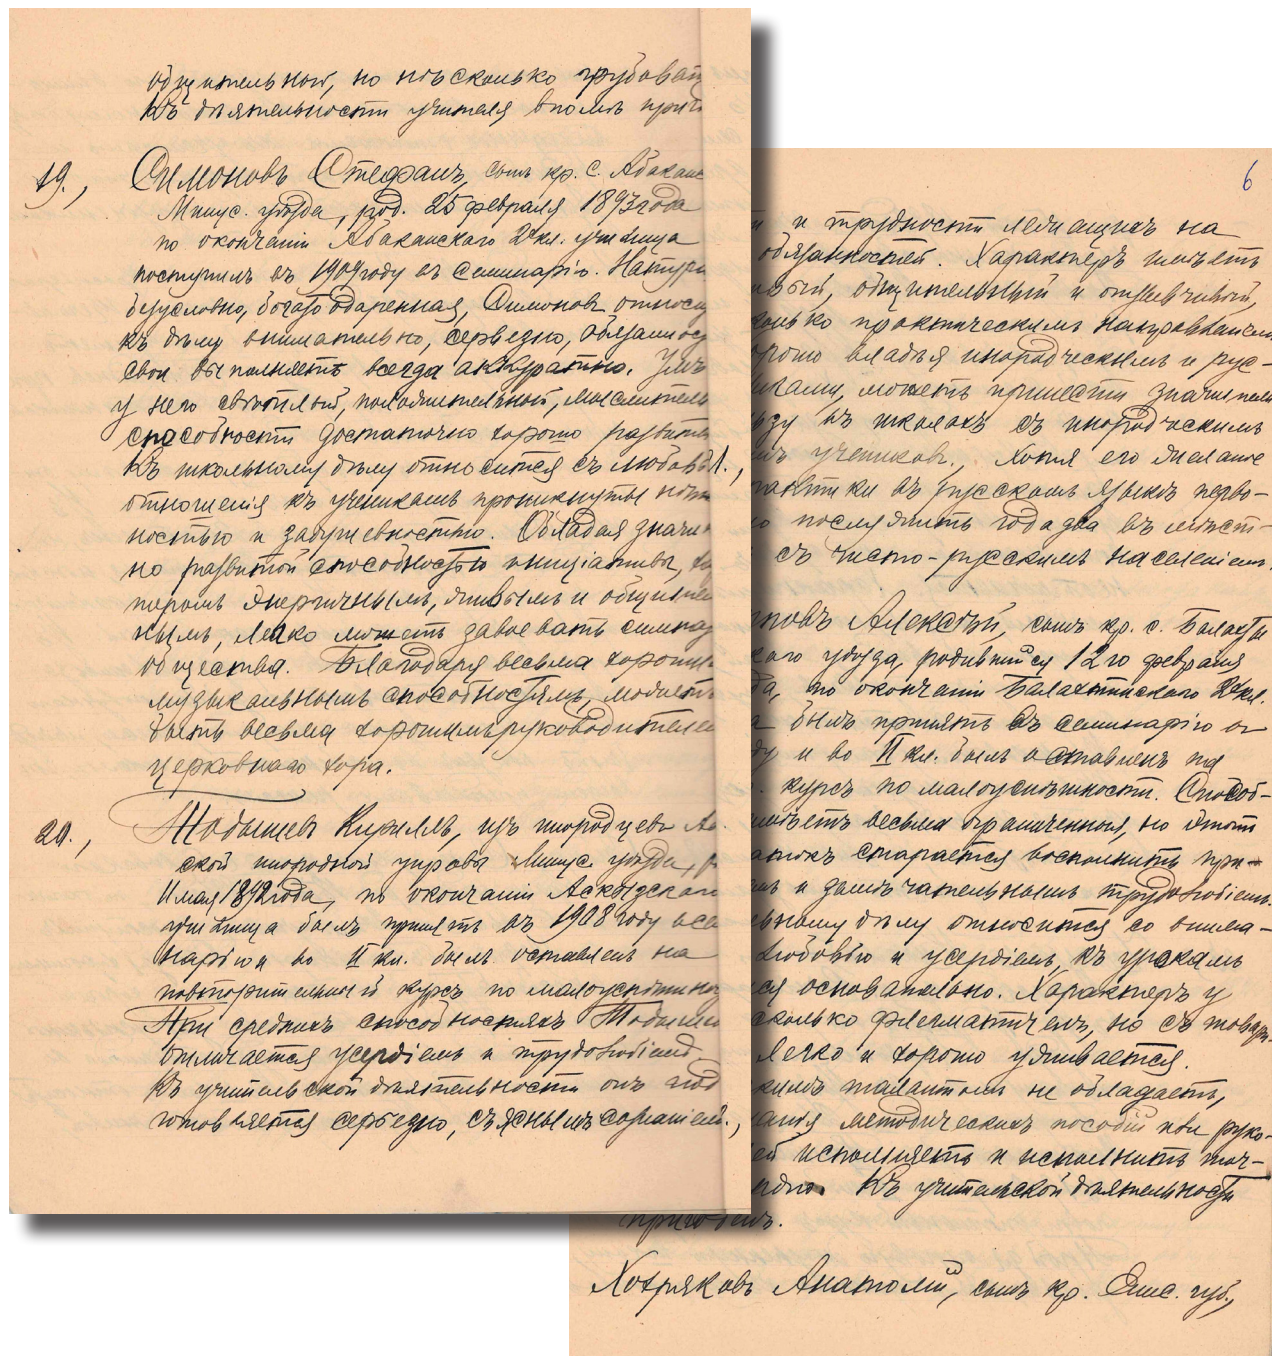 общительной, но нѣсколько грубоват
Къ дѣятельности учителя вполнѣ приг
19.,
Симоновъ Стефанъ, сынъ кр. с. Абаканс
Минус. уѣзда, род. 25 февраля 1893 года
по окончаніи Абаканскаго 2хкл. училища
поступилъ въ 1909 году въ Семинарію. Натура
безусловно, богато одаренная, Симоновъ относи
къ дѣлу внимательно, серьезно, обязанност
свои выполняетъ всегда аккуратно. Умъ
у него свѣтлый, положительный, мыслитель
способности достаточно хорошо развиты
Къ школьному дѣлу относится съ любовью,
отношенія къ ученикамъ проникнуты нѣж
ностью и задушевностью. Обладая значит
но развитой способностью иниціативы, ха
теромъ энергичнымъ, живымъ и общител
нымъ, легко можетъ завоевать симпат
общества. Благодаря весьма хорошимъ
музыкальнымъ способностямъ, можетъ
быть весьма хорошимъ руководителем
церковнаго хора.
20.,
Тобышевъ Кириллъ, изъ инородцевъ Ас
ской инородной управы Минус. уѣзда, р
11 мая 1892 года, по окончаніи Аскызскаго
училища былъ принятъ въ 1908 году въ се
нарію и во II кл. былъ оставленъ на
повторительный курсъ по малоуспѣшност
При среднихъ способностяхъ Тобышев
отличается усердіемъ и трудолюбіемъ.
Къ учительской дѣятельности онъ под
готовляется серьезно, съ яснымъ сознаніемъ,
6
и трудности лежащихъ на
обязанностей. Характеръ имѣетъ
общительный и отзывчивый,
практическимъ направленіем
владѣя инородческимъ и рус-
можетъ принести значитель
въ школахъ съ инородческимъ
учениковъ, хотя его желаніе
въ русскомъ языкѣ перво-
послужить года два въ мѣст-
съ чисто-русскимъ населеніемъ.
новъ Алексѣй, сынъ кр. с. Балахты
каго уѣзда, родившійся 12го февраля
по окончаніи Балахтинскаго 2хкл.
былъ принятъ въ семинарію въ
и во II кл. былъ оставленъ на
курсъ по малоуспѣшности. Способ-
имѣетъ весьма ограниченныя, но этотъ
старается восполнить при-
и замѣчательнымъ трудолюбіемъ.
дѣлу относится со внима-
любовью и усердіемъ, къ урокамъ
ся основательно. Характеръ у
флегматиченъ, но съ товари-
легко и хорошо уживается.
талантомъ не обладаетъ,
методическихъ пособій при руко-
исполняетъ и исполнитъ точ-
Къ учительской дѣятельности
пригоденъ.
Хотряковъ Анатолій, сынъ кр. Енис. губ.,